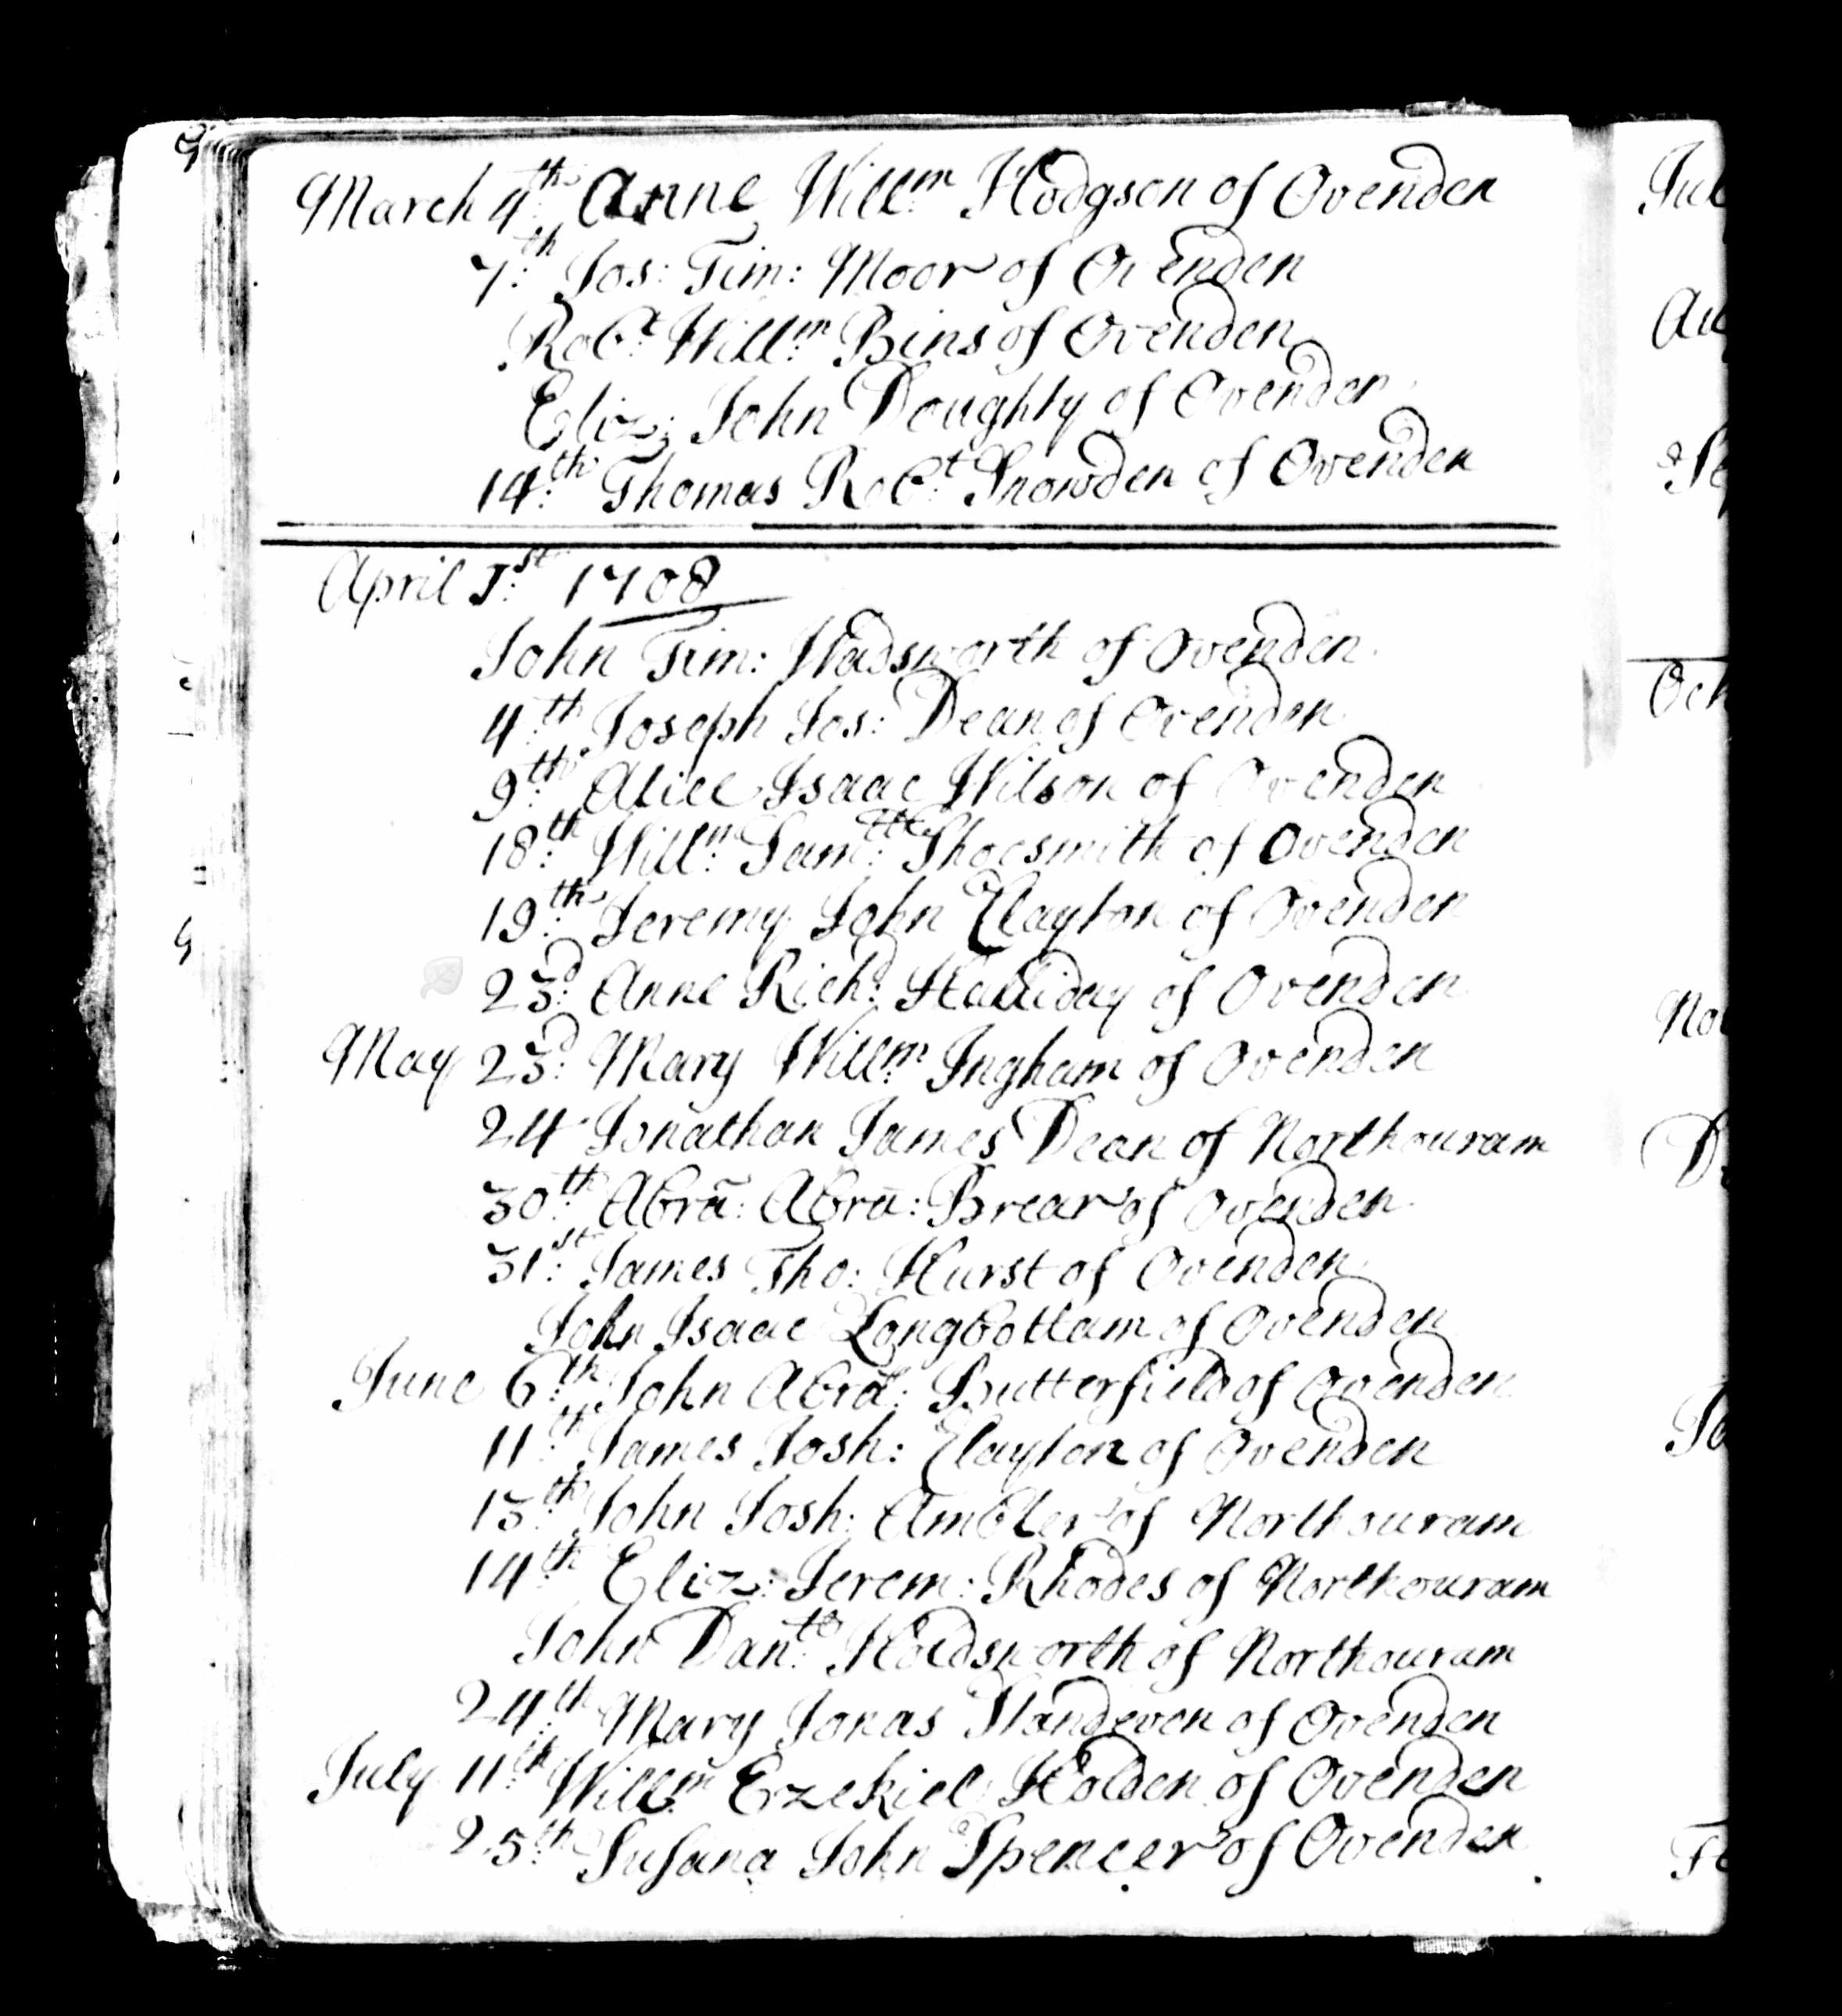 March 4th Anne Willm Hodgson of Ovenden
7th Jos: Tim: Moor of Ovenden
Robt Willm Bins of Ovenden
Eliz: John Doughty of Ovenden
14th Thomas Robt Snowden of Ovenden
April 1st 1708
John Tim: Wadsworth of Ovenden
4th Joseph Jos: Dean of Ovenden
9th Alice Isaac Wilson of Ovenden
18th Willm Samll Shoesmith of Ovenden
19th Jeremy John Clayton of Ovenden
23d Anne Richd Halliday of Ovenden
May 23d Mary Willm Ingham of Ovenden
24 Jonathan James Dean of Northouram
30th Abrã: Abrã: Brear of Ovenden
31st James Tho: Hurst of Ovenden
John Isaac Longbottam of Ovenden
June 6th John Abrã: Butterfield of Ovenden
11th James Josh: Clayton of Ovenden
13th John Josh: Ambler of Northouram
14th Eliz: Jerem: Rhodes of Northouram
John Danll Holdsworth of Northouram
24th Mary Jonas Standeven of Ovenden
July 11th Willm Ezekiel Holden of Ovenden
25th Susana John Spencer of Ovenden